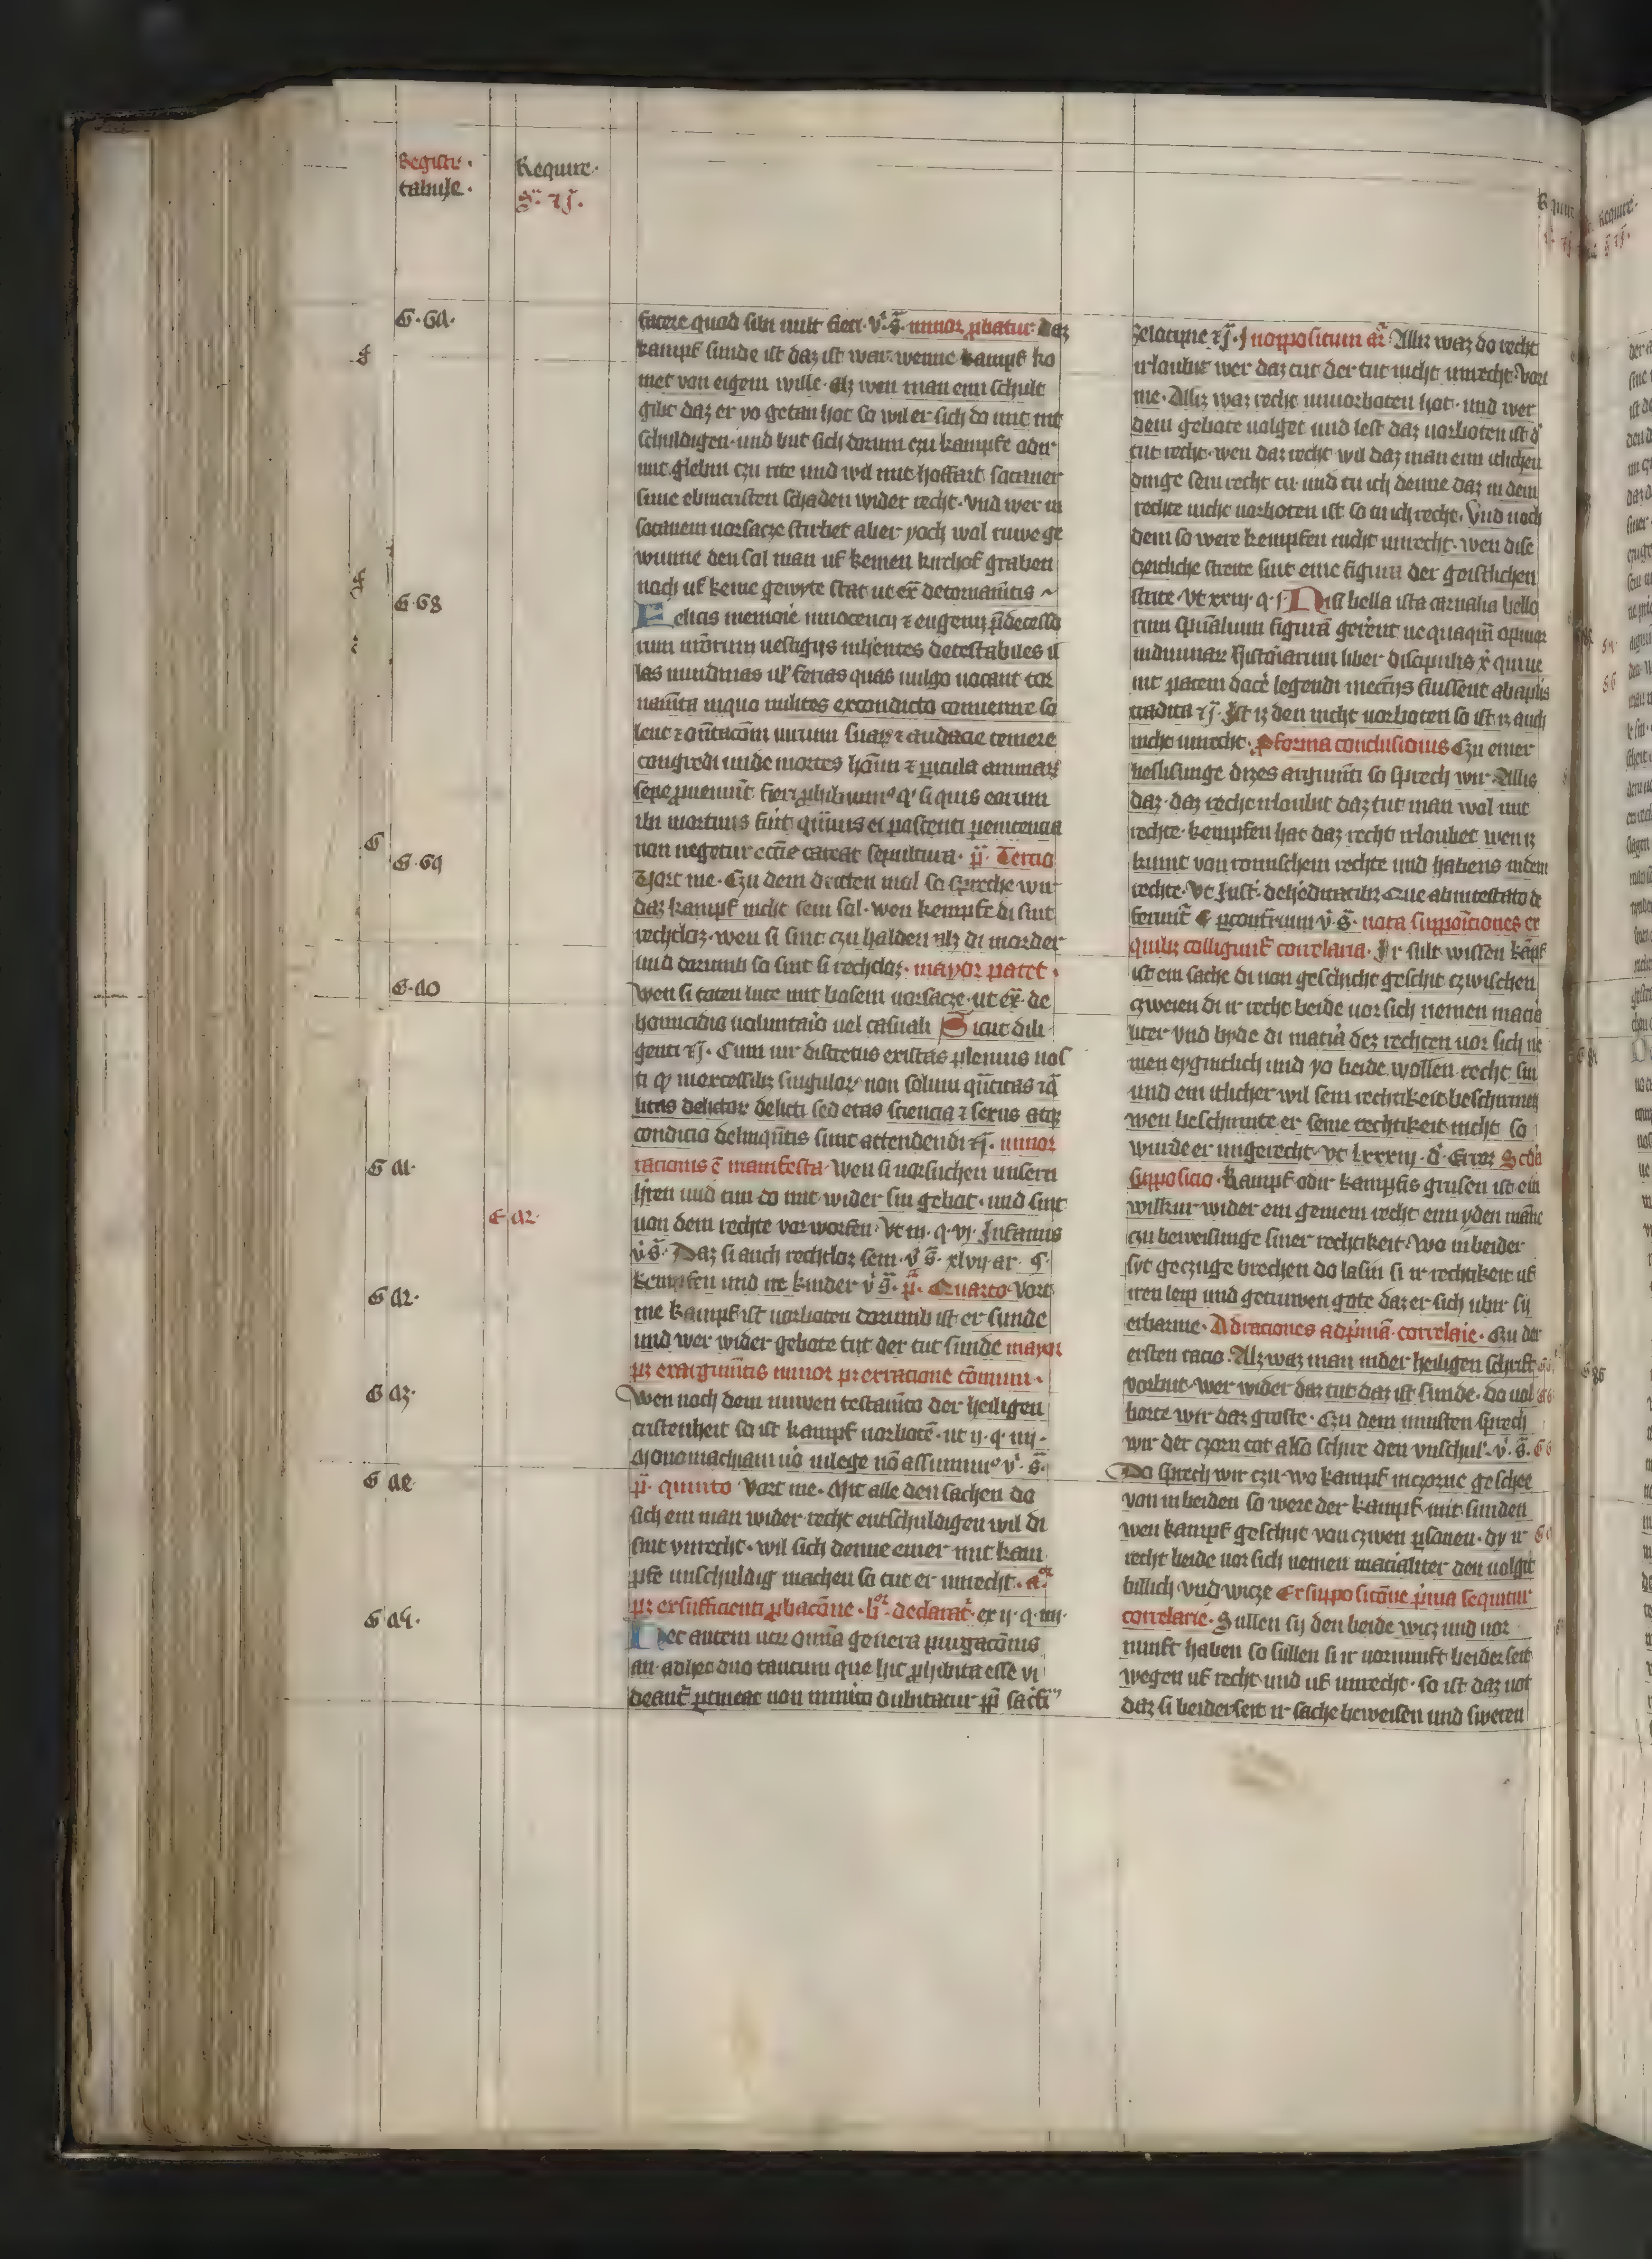 Registr·
tabule·
Require·
g̃· ⁊j·
G·6a·
G·68
G·69
G·a0
G a1·
G a2·
G a2·
G a3·
G ae
G a4·
facere quod sibi uult fieri· v̓· s̃· minor ꝓbatur daz
kampf sunde ist daz ist war· wenne kampf ko
met von eigem wille· alz wen man eim schult
gibt daz er yo getan hot so wil er sich do mit nit
schuldigen· und but sich dorum czu kampfe odir
mit glebin czu rite und wil mit hoffart sotaner
sime ebincristen schaden wider recht· Vnd wer in
sotanem uorsacze stirbet aber yoch wol ruwe ge
wunne den sal man uf keinen kirchof graben
noch uf keine gewyte stat ut ex̃ de tornamẽtis
Felicis memorie innocencij ⁊ eugenij p̃decesso
rum nr̃orum uestigijs inhẽentes detestabiles il
las nundinas ul̓ ferias quas uulgo uocant tor
namẽta inquo milites excondicto conuenire so
lent ⁊ ostẽtacõm uirium suaꝝ ⁊ audacie temere
congredi unde mortes hõim ⁊ ꝑicula animaꝝ
sepe ꝓueniunt fieri ꝓhibemꝰ ꝙ si quis eorum
ibi mortuus fuit quãuis ei poscenti penitencia
non negetur eccl̃ie careat sepultura· p̃· Tercio
Vort me· Czu dem dritten mol so spreche wir
daz kampf nicht sein sal· wen kempfe di sint
rechtloz· wen si sint czu halden alz di morder
und dorumb so sint si rechtloz· mayor patet·
Wen si toten lute mit bosem uorsacze· ut ex̃· de
homicidio uoluntario uel casuali Sicut dili
genti ⁊j· Cum iur̃ discretus existas plenius nos
ti ꝙ inexcessibꝫ singuloꝝ non solum qũtitas ⁊ q̃
litas delictoꝝ delicti sed etas sciencia ⁊ sexus atqꝫ
condicio delinquẽtis sunt attendendi ⁊j· minor
racionis ẽ manifesta· Wen si uorsuchen unsern
hren und tun do mit wider sin gebot· und sint
uon dem rechte vorworfen· Vt iij· q· vj· Infamis
v̓ s̃· Daz si auch rechtloz sein· v̓ s̃· xlvij ar· q·
kempfen und ire kinder v̓ s̃· p̃· Quarto· Vort
me kampf ist uorboten dorumb ist er sunde
und wer wider gebote tut der tut sunde mayor
pꝫ exargumẽtis minor pꝫ exracione cõmuni·
Wen noch dem nuwen testamẽto der heiligen
cristenheit so ist kampf uorbotẽ· ut ij· q· iiij·
Monomachiam uo inlege nõ assumimꝰ v̓· s̃·
p̃· quinto Vort me· Mit alle den sachen do
sich ein man wider recht entschuldigen wil di
sint vnrecht· wil sich denne einer mit kam
pfe unschuldig machen so tut er unrecht·
pꝫ exsufficienti ꝓbacõne· declarat· ex ij· q· iiij·
Hec autem utrum omnia genera purgacõnis
an adhec duo tantum que hic ꝓhibita esse vi
deant̃ ꝑtineat non inmito dubitatur
zelotipie ⁊j· Inoppositum ar̃ Alliz waz do recht
irloubit wer daz tut der tut nicht unrecht· Vort
me· Alliz waz recht unuorboten hot· und wer
dem gebote uolget und lest daz uorboten ist d̓
tut recht· wen daz recht wil daz man eim itlichen
dinge sein recht tu· und tu ich denne daz in dem
rechte nicht uorboten ist so tu ich recht· Vnd noch
dem so were kempfen nicht unrecht· wen dise
czeitliche streite sint eine figura der geistlichen
strite· Vt xxiij· q· j· Nisi bella ista carnalia bello
rum spũalium figurã gererent nequaquã opinor
iudaicaꝝ historiarum liber discipulis x̃ qui ue
nit pacem docẽ legendi inecc̃ijs fuissent ab aplis
tradita ⁊j· Ist iz den nicht uorboten so ist iz auch
nicht unrecht· Pro forma conclusionis Czu einer
beslisunge dizes argumẽti so sprech wir· Alliz
daz· daz recht irloubit daz tut man wol mit
rechte· kempfen hat daz recht irloubet wen iz
kumt von romischem rechte und habens in dem
rechte· Vt Just̃· de hẽditatibꝫ que abintestato de
ferunt̃ Et ꝑ contrarium v̓· s̃· nota supposicões ex
quibꝫ colligunt̃ correlaria· Ir sult wissen kãpf
ist ein sache di von geschicht geschit czwischen
czweien di ir recht beide uor sich nemen mat̃ia
liter Vnd byde di mat̃ia dez rechten uor sich ne
men eygintlich und yo beide wollen recht sin
und ein itlicher wil sein rechtikeit beschirmen
wen beschirmte er seine rechtikeit nicht so
wurde er ungerecht· Vt lxxxiij· d̓· Error Scd̃a
supposicio· Kampf odir kampfis grusen ist ein
wilkur wider ein gemein recht eim yden mãne
czu beweisunge siner rechtikeit· Wo in beider
syt geczuge brechen do lasin si ir rechtikeit uf
iren leip und getruwen gote daz er sich ubir sy
erbarme· Ad raciones ad p̓mã correlarie· Czu der
ersten racio· Alz waz man inder heiligen schrift
vorbut· wer wider daz tut daz ist sunde· do uol
borte wir daz groste· Czu dem minsten sprech
wir der czorn tot also schire den vnschul· v̓· s̃·
Do sprech wir czu· wo kampf inczorne geschee
von in beiden so were der kampf mit sunden
wen kampf geschiit von czwen ꝑsonen· dy ir
recht beide uor sich nemen mat̃ialiter den uolgit
billich Vnd wicze Exsupposicõne prima sequitur
correlarie· Sullen sy den beide wicz und uor
nunft haben so sullen si ir uornunft beiderseit
wegen uf recht und uf unrecht· so ist daz not
daz si beiderseit ir sache beweisen und sweren